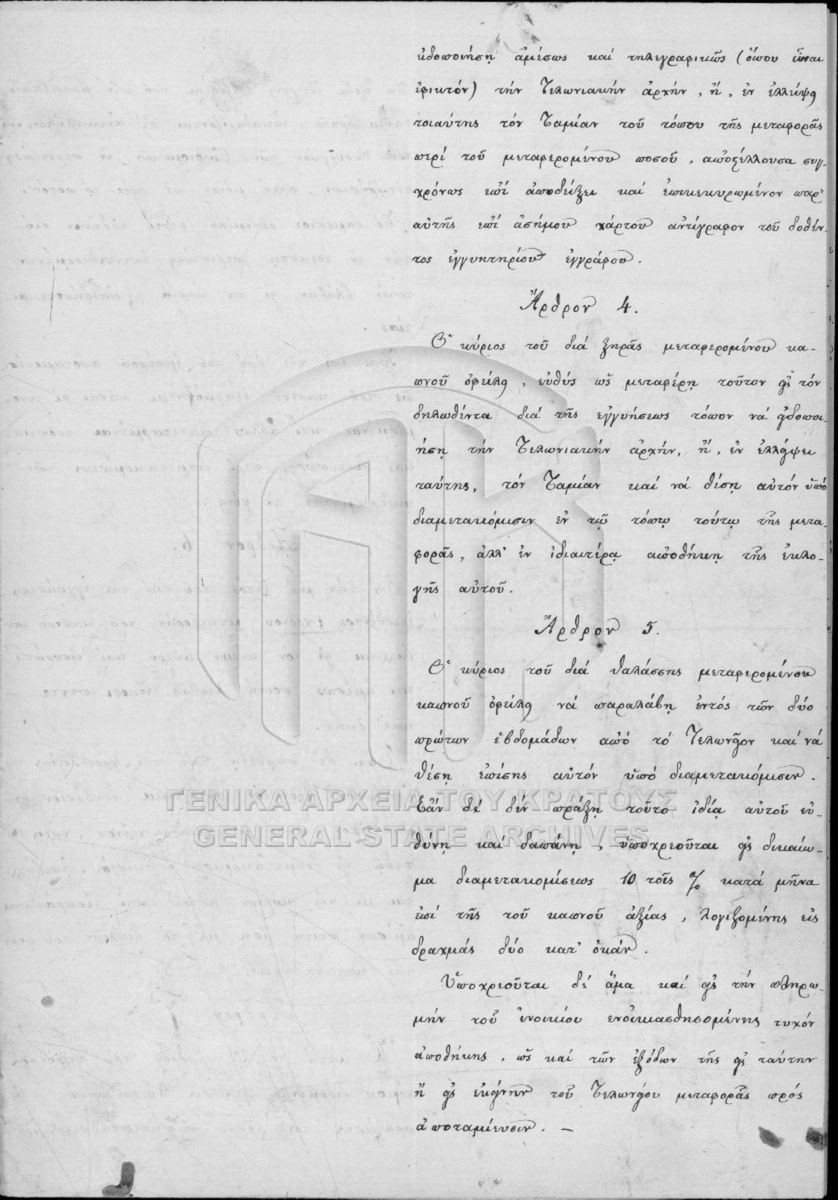 εἰδοποιήσῃ ἀμέσως καὶ τηλεγραφικῶς (ὅπου εἶναι
ἐφικτόν) τὴν Τελωνιακὴν ἀρχήν, ἤ, ἐν ἐλλείψει
τοιαύτης τὸν Ταμίαν τοῦ τόπου τῆς μεταφορᾶς
περὶ τοῦ μεταφερομένου ποσοῦ, ἀποστέλλουσα συγ-
χρόνως ἐπὶ ἀποδείξει καὶ ἐπικεκυρωμένον παρ'
αὐτῆς ἐπὶ ἀσήμου χάρτου ἀντίγραφον τοῦ δοθέν-
τος ἐγγυητηρίου ἐγγράφου.
Ἄρθρον 4.
Ὁ κύριος τοῦ διὰ ξηρᾶς μεταφερομένου κα-
πνοῦ ὀφείλει, εὐθὺς ὡς μεταφέρῃ τοῦτον εἰς τὸν
δηλωθέντα διὰ τῆς ἐγγυήσεως τόπον νὰ εἰδοποι-
ήσῃ τὴν Τελωνιακὴν ἀρχήν, ἤ, ἐν ἐλλείψει
ταύτης, τὸν Ταμίαν καὶ νὰ θέσῃ αὐτὸν ὑπὸ
διαμετακόμισιν ἐν τῷ τόπῳ τούτῳ τῆς μετα-
φορᾶς, ἀλλ' ἐν ἰδιαιτέρᾳ ἀποθήκῃ τῆς ἐκλο-
γῆς αὐτοῦ.
Ἄρθρον 5.
Ὁ κύριος τοῦ διὰ θαλάσσης μεταφερομένου
καπνοῦ ὀφείλει νὰ παραλάβῃ ἐντὸς τῶν δύο
πρώτων ἑβδομάδων ἀπὸ τὸ Τελωνεῖον καὶ νὰ
θέσῃ ἐπίσης αὐτὸν ὑπὸ διαμετακόμισιν.
Ἐὰν δὲ δὲν πράξῃ τοῦτο ἰδίᾳ αὐτοῦ εὐ-
θύνῃ καὶ δαπάνῃ, ὑποχρεοῦται εἰς δικαίω-
μα διαμετακομίσεως 10 τοῖς % κατὰ μῆνα
ἐπὶ τῆς τοῦ καπνοῦ ἀξίας, λογιζομένης εἰς
δραχμὰς δύο κατ' ὀκάν.
Ὑποχρεοῦται δὲ ἅμα καὶ εἰς τὴν πληρω-
μὴν τοῦ ἐνοικίου ἐνοικιασθησομένης τυχὸν
ἀποθήκης, ὡς καὶ τῶν ἐξόδων τῆς εἰς ταύτην
ἢ εἰς ἐκείνην τοῦ Τελωνείου μεταφορᾶς πρὸς
ἀποταμίευσιν. —
ΓΕΝΙΚΑ ΑΡΧΕΙΑ ΤΟΥ ΚΡΑΤΟΥΣ
GENERAL STATE ARCHIVES